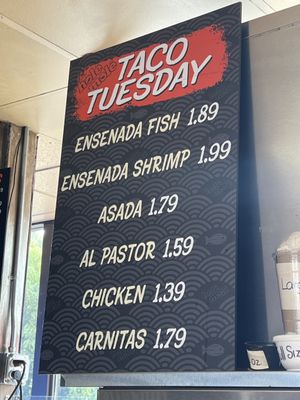 TACO
TUESDAY
ENSENADA FISH 1.89
ENSENADA SHRIMP 1.99
ASADA 1.79
AL PASTOR 1.59
CHICKEN 1.39
CARNITAS 1.79
OZ
Siz